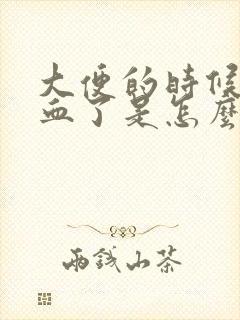 大便的時候
血了是怎麼
雨錢山茶